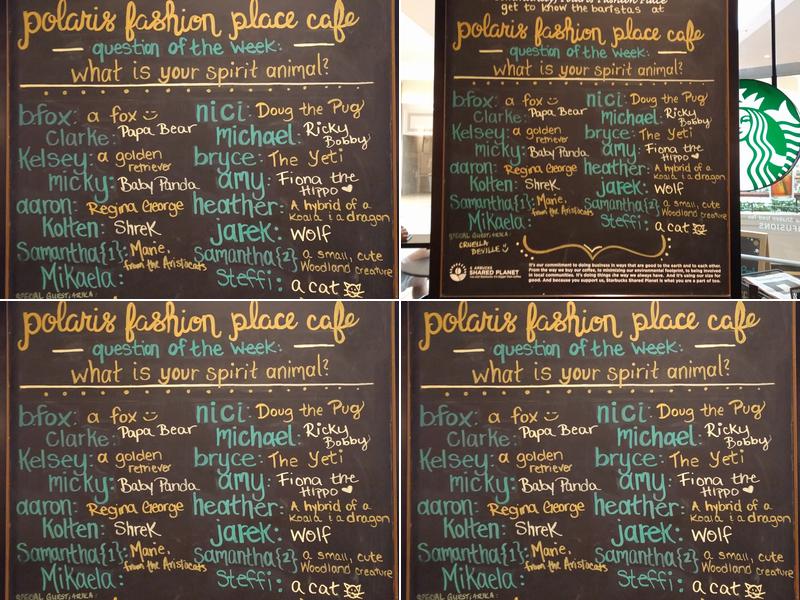 polaris fashion place cafe
question of the week:
what is your spirit animal?
bfox: a fox
nici: Doug the Pug
Clarke: Papa Bear
michael: Ricky Bobby
Kelsey: a golden retriever
bryce: The Yeti
micky: Baby Panda
amy: Fiona the Hippo
aaron: Regina George
heather: A hybrid of a koala & a dragon
Kolten: Shrek
jarek: wolf
Samantha{1}: Marie, from the Aristocats
Samantha{2}: a small, cute Woodland creature
Mikaela:
Steffi: a cat
SPECIAL GUEST, ARIKA:
get to know the baristas at
polaris fashion place cafe
question of the week:
what is your spirit animal?
bfox: a fox
nici: Doug the Pug
Clarke: Papa Bear
michael: Ricky Bobby
Kelsey: a golden retriever
bryce: The Yeti
micky: Baby Panda
amy: Fiona the Hippo
aaron: Regina George
heather: A hybrid of a koala & a dragon
Kolten: Shrek
jarek: wolf
Samantha{1}: Marie, from the Aristocats
Samantha{2}: a small, cute Woodland creature
Mikaela:
Steffi: a cat
SPECIAL GUEST, ARIKA:
CRUELLA DEVILLE
STARBUCKS
SHARED PLANET
It's our commitment to doing business in ways that are good to the earth and to each other.
From the way we buy our coffee, to minimizing our environmental footprint, to being involved
in local communities. It's doing things the way we always have. And it's using our size for
good. And because you support us, Starbucks Shared Planet is what you are a part of.
polaris fashion place cafe
question of the week:
what is your spirit animal?
bfox: a fox
nici: Doug the Pug
Clarke: Papa Bear
michael: Ricky Bobby
Kelsey: a golden retriever
bryce: The Yeti
micky: Baby Panda
amy: Fiona the Hippo
aaron: Regina George
heather: A hybrid of a koala & a dragon
Kolten: Shrek
jarek: wolf
Samantha{1}: Marie, from the Aristocats
Samantha{2}: a small, cute Woodland creature
Mikaela:
Steffi: a cat
SPECIAL GUEST, ARIKA:
polaris fashion place cafe
question of the week:
what is your spirit animal?
bfox: a fox
nici: Doug the Pug
Clarke: Papa Bear
michael: Ricky Bobby
Kelsey: a golden retriever
bryce: The Yeti
micky: Baby Panda
amy: Fiona the Hippo
aaron: Regina George
heather: A hybrid of a koala & a dragon
Kolten: Shrek
jarek: wolf
Samantha{1}: Marie, from the Aristocats
Samantha{2}: a small, cute Woodland creature
Mikaela:
Steffi: a cat
SPECIAL GUEST, ARIKA: